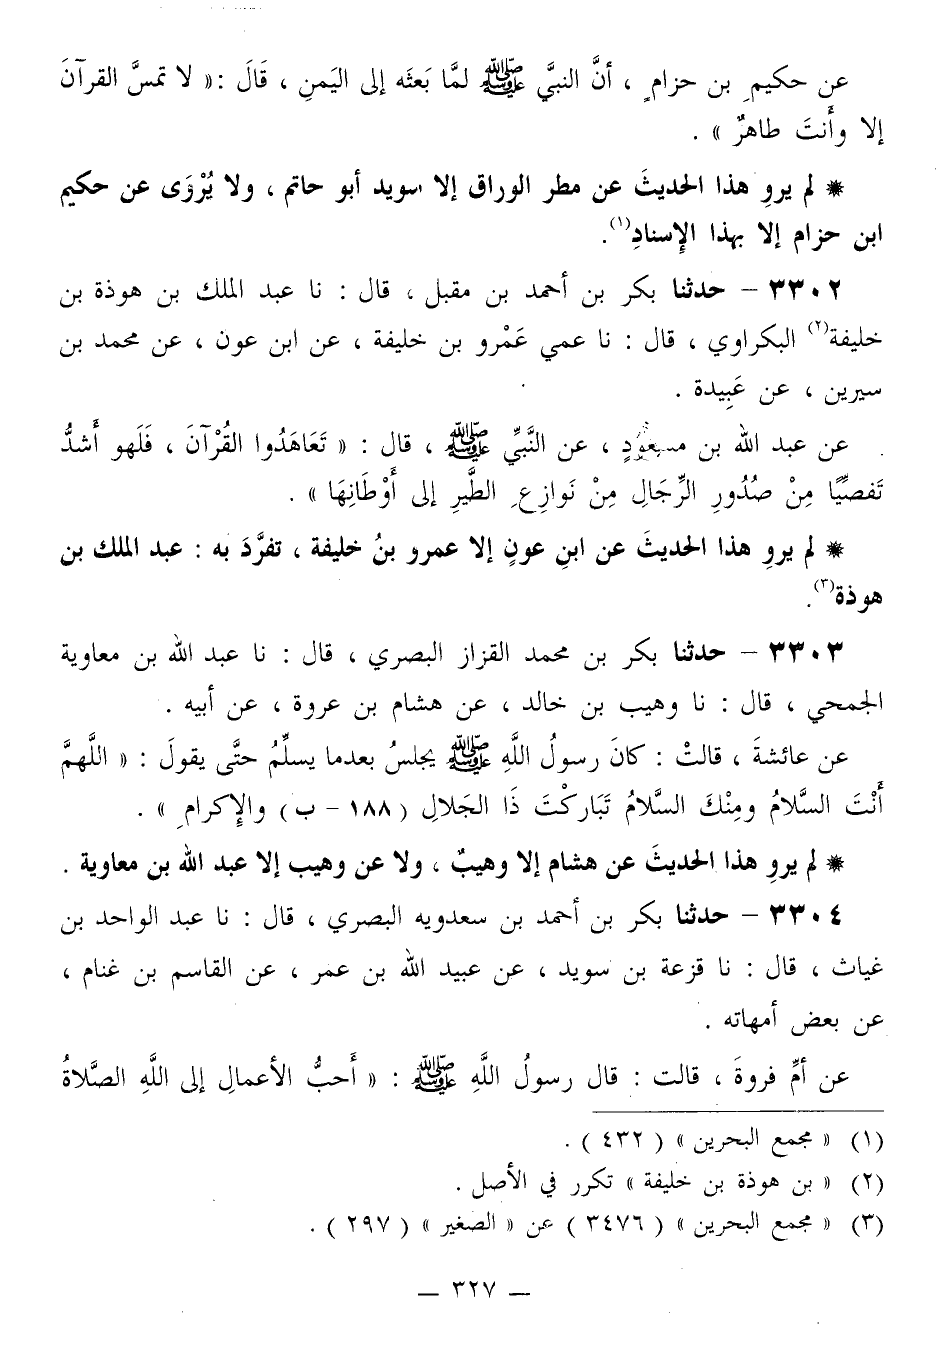 عن حكيمِ بن حزامٍ ، أنَّ النبيَّ ﷺ لمَّا بَعثَه إلى اليَمنِ ، قَالَ :« لا تمسَّ القرآنَ
إلا وأَنتَ طاهرٌ » .
* لم يروِ هذا الحديثَ عن مطر الوراق إلا سويد أبو حاتم ، ولا يُرْوَى عن حكيم
ابن حزام إلا بهذا الإِسنادِ(١).
٣٣٠٢ - حدثنا بكر بن أحمد بن مقبل ، قال : نا عبد الملك بن هوذة بن
خليفة(٢) البكراوي ، قال : نا عمي عَمْرو بن خليفة ، عن ابن عون ، عن محمد بن
سيرين ، عن عَبِيدة .
عن عبد الله بن مسعودٍ ، عن النَّبيِّ ﷺ ، قال : « تَعَاهَدُوا القُرْآنَ ، فَلَهو أَشدُّ
تَفصِّيًا مِنْ صُدُورِ الرِّجَالِ مِنْ نَوازِعِ الطَّيرِ إلى أَوْطَانِهَا » .
* لم يروِ هذا الحديثَ عن ابنِ عونٍ إلا عمرو بنُ خليفة ، تفرَّدَ به : عبد الملك بن
هوذة(٣).
٣٣٠٣ - حدثنا بكر بن محمد القزاز البصري ، قال : نا عبد الله بن معاوية
الجمحي ، قال : نا وهيب بن خالد ، عن هشام بن عروة ، عن أبيه .
عن عائشةَ ، قالتْ : كانَ رسولُ اللَّهِ ﷺ يجلسُ بعدما يسلِّمُ حتَّى يقولَ : « اللَّهمَّ
أَنْتَ السَّلامُ ومِنْكَ السَّلامُ تَبَاركْتَ ذَا الجَلالِ ( ١٨٨ - ب ) والإِكرامِ » .
* لم يروِ هذا الحديثَ عن هشام إلا وهيبٌ ، ولا عن وهيب إلا عبد الله بن معاوية .
٣٣٠٤ - حدثنا بكر بن أحمد بن سعدويه البصري ، قال : نا عبد الواحد بن
غياث ، قال : نا قزعة بن سويد ، عن عبيد الله بن عمر ، عن القاسم بن غنام ،
عن بعض أمهاته .
عن أمِّ فروةَ ، قالت : قال رسولُ اللَّهِ ﷺ : « أَحبُّ الأعمالِ إلى اللَّهِ الصَّلاةُ
(١) « مجمع البحرين » ( ٤٣٢ ) .
(٢) « بن هوذة بن خليفة » تكرر في الأصل .
(٣) « مجمع البحرين » ( ٣٤٧٦ ) عن « الصغير » ( ٢٩٧ ) .
— ٣٢٧ —